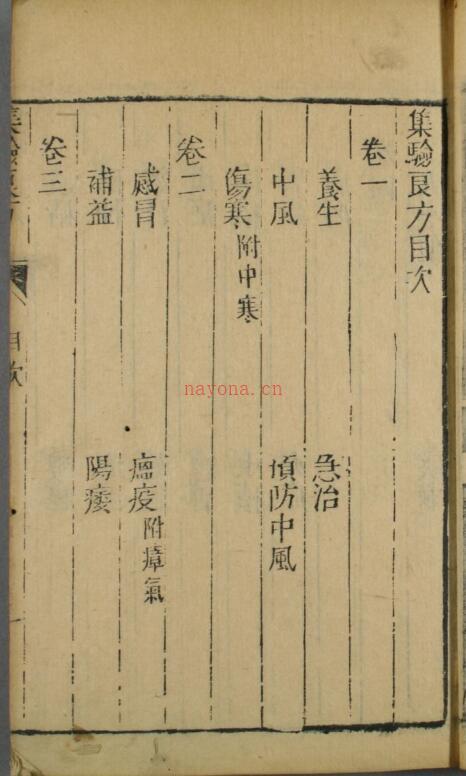 集驗良方目次
卷一
養生 急治
中風 預防中風
傷寒附中寒
卷二
感冒 瘟疫附瘴氣
補益 陽痿
卷三
集驗良方 目次 一
nayona.cn